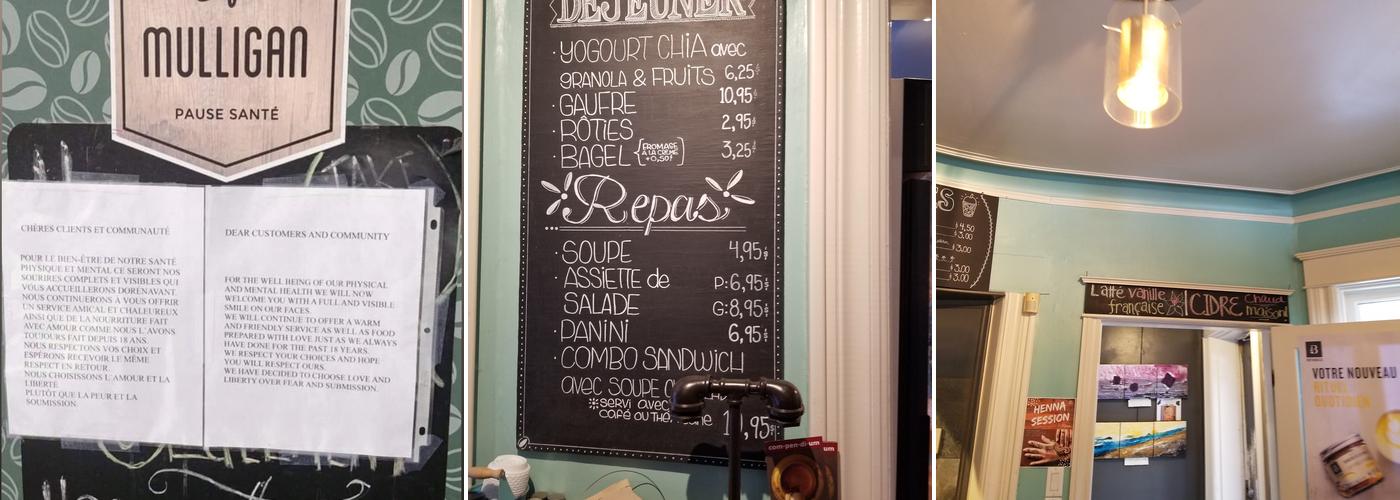 MULLIGAN
PAUSE SANTÉ
CHÈRES CLIENTS ET COMMUNAUTÉ
POUR LE BIEN-ÊTRE DE NOTRE SANTÉ
PHYSIQUE ET MENTAL CE SERONT NOS
SOURIRES COMPLETS ET VISIBLES QUI
VOUS ACCUEILLERONS DORENAVANT.
NOUS CONTINUERONS À VOUS OFFRIR
UN SERVICE AMICAL ET CHALEUREUX
AINSI QUE DE LA NOURRITURE FAIT
AVEC AMOUR COMME NOUS L'AVONS
TOUJOURS FAIT DEPUIS 18 ANS.
NOUS RESPECTONS VOS CHOIX ET
ESPÉRONS RECEVOIR LE MÊME
RESPECT EN RETOUR.
NOUS CHOISISSONS L'AMOUR ET LA
LIBERTÉ
PLUTÔT QUE LA PEUR ET LA
SOUMISSION.
DEAR CUSTOMERS AND COMMUNITY
FOR THE WELL BEING OF OUR PHYSICAL
AND MENTAL HEALTH WE WILL NOW
WELCOME YOU WITH A FULL AND VISIBLE
SMILE ON OUR FACES.
WE WILL CONTINUE TO OFFER A WARM
AND FRIENDLY SERVICE AS WELL AS FOOD
PREPARED WITH LOVE JUST AS WE ALWAYS
HAVE DONE FOR THE PAST 18 YEARS.
WE RESPECT YOUR CHOICES AND HOPE
YOU WILL RESPECT OURS.
WE HAVE DECIDED TO CHOOSE LOVE AND
LIBERTY OVER FEAR AND SUBMISSION.
DÉJEUNER
· YOGOURT CHIA avec
GRANOLA & FRUITS 6,25$
· GAUFRE 10,95$
· RÔTIES 2,95$
· BAGEL {FROMAGE À LA CRÈME +0,50!} 3,25$
Repas
· SOUPE 4,95$
· ASSIETTE de P:6,95$
SALADE G:8,95$
· PANINI 6,95$
· COMBO SANDWICH
avec SOUPE
*servi avec
café ou thé,
com·pen·di·um
S
$4,50
$3,00
$3,00
$3,00
$3,00
Latté vanille française
CIDRE chaud maison!
HENNA
SESSION
B
VOTRE NOUVEAU
RITUEL
QUOTIDIEN